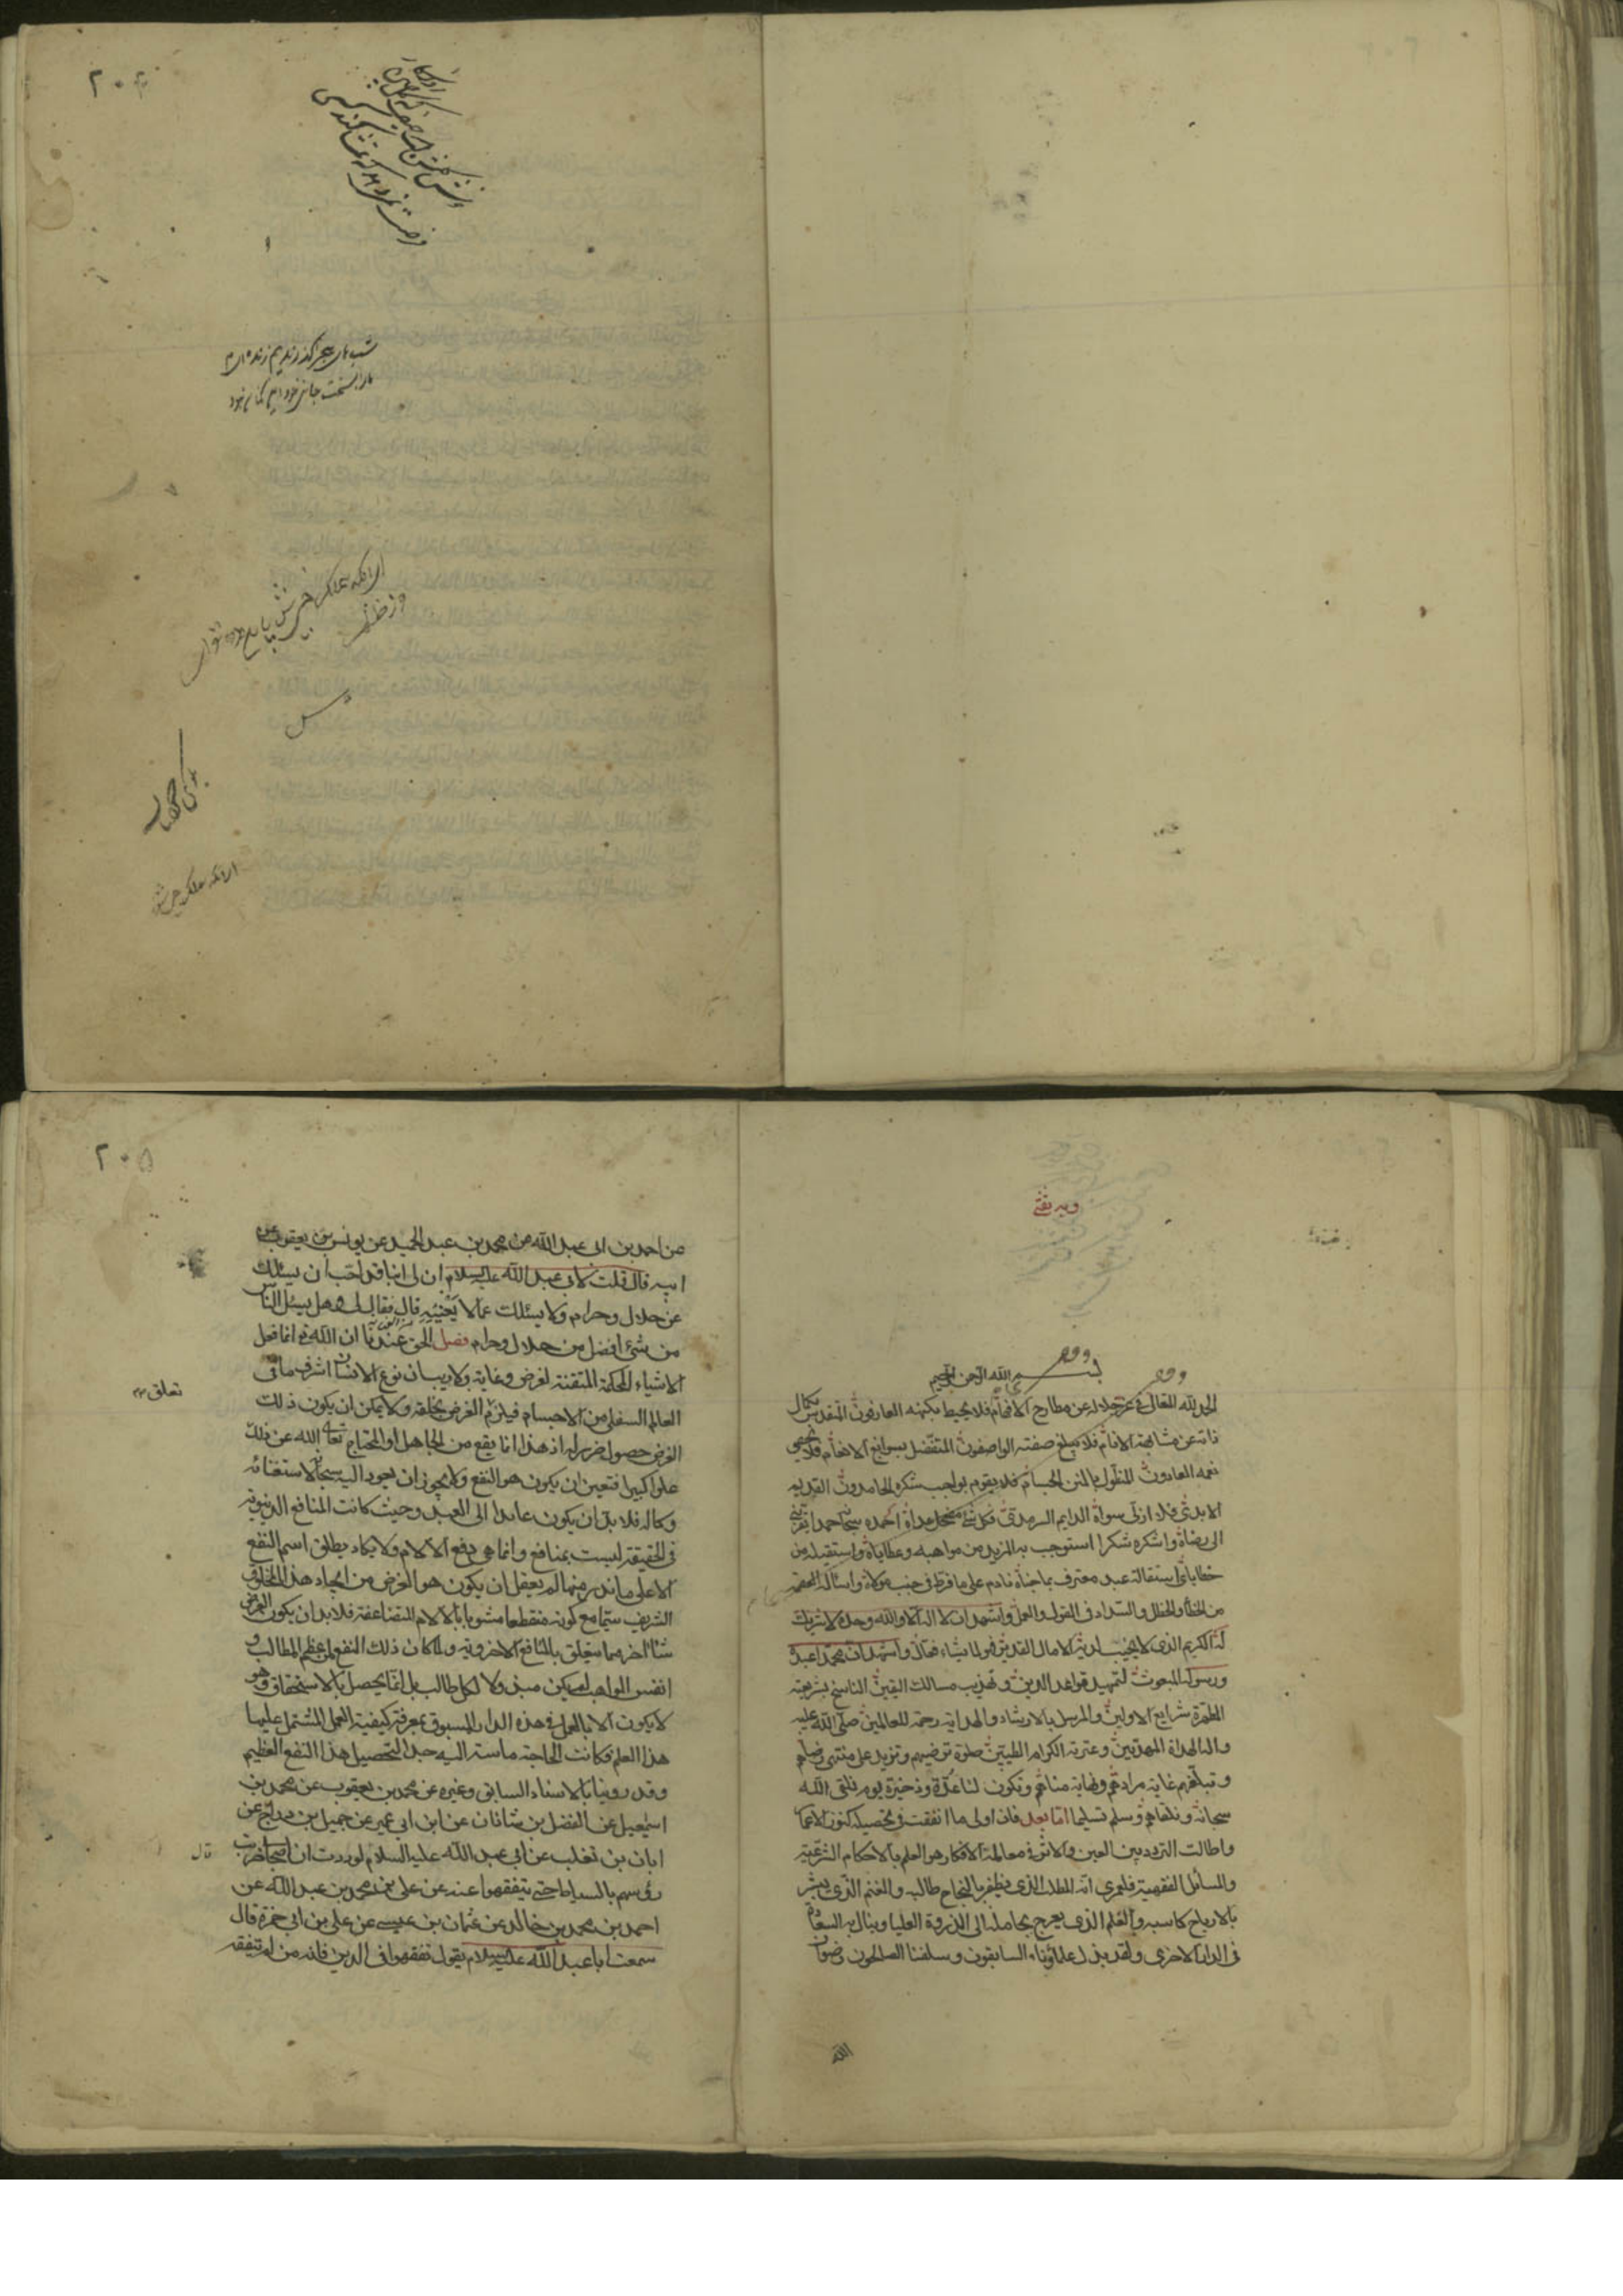 ٢٠٤
شب های هجر گذراندیم و زنده ایم
ما را بسخت جانی خود این کمان نبود
٢٠٥
وبه ثقتي
بسم الله الرحمن الرحيم
الحمد لله المتعال في عز جلاله عن مطارح الافهام فلا يحيط بكنهه العارفون المتقدس بكمال
ذاته عن مشابهة الانام فلا يبلغ صفته الواصفون المتفضل بسوابغ الانعام فلا يحصي
نعمه العادون المتطول بالمنن الجسام فلا يقوم بواجب شكره الحامدون القديم
الابدي فلا ازلي سواه الدايم السرمدي فكل شيء مضمحل عداه احمده سبحانه حمدا يقربني
الى رضاه واشكره شكرا استوجب به المزيد من مواهبه وعطاياه واستقيله من
خطاياي استقالة عبد معترف بما جناه نادم على ما فرط في جنب مولاه واساله العصمة
من الخطأ والخطل والسداد في القول والعمل واشهد ان لا اله الا الله وحده لا شريك
له الكريم الذي لا يخيب لديه الامال القدير فهو لما يشاء فعال واشهد ان محمدا عبده
ورسوله المبعوث لتمهيد قواعد الدين وتهذيب مسالك اليقين الناسخ بشريعته
المطهرة شرايع الاولين والمرسل بالارشاد والهداية رحمة للعالمين صلى الله عليه
واله الهداة المهديين وعترته الكرام الطيبين صلوة ترضيهم وتزيد على منتهى رضاهم
وتبلغهم غاية مرادهم ونهاية مناهم وتكون لنا عدة وذخيرة يوم نلقى الله
سبحانه ونلقاهم وسلم تسليما اما بعد فان اولى ما انفقت في تحصيله كنوز الاعمار
واطالت التردد بين العين والاثر في معالمه الافكار هو العلم بالاحكام الشرعية
والمسائل الفقهية فلعمري انه المطلب الذي يظفر بالنجاح طالبه والمغنم الذي يبشر
بالارباح كاسبه والعلم الذي يعرج بحامله الى الذروة العليا وينال به السعادة
في الدار الاخرى ولقد بذل علماؤنا السابقون وسلفنا الصالحون رضوان
الله
من احمد بن ابى عبد الله عن محمد بن عبد الحميد عن يونس بن يعقوب عن
ابيه قال قلت لابي عبد الله عليه السلام ان لي ابنا قد احب ان يسئلك
عن حلال وحرام ولا يسئلك عما لا يعنيه قال فقال لي وهل يسئل الناس
من شئ افضل من حلال وحرام فصل الحق عندنا ان الله تع انما فعل
الاشياء المحكمة المتقنة لغرض وغاية ولا ريب ان نوع الانسان اشرف ما في
العالم السفلي من الاجسام فيلزم الغرض بخلقه ولا يمكن ان يكون ذلك
الغرض حصول ضرر له اذ هذا انما يقع من الجاهل او المحتاج تعالى الله عن ذلك
علوا كبيرا فتعين ان يكون هو النفع ولا يجوز ان يعود اليه سبحانه لاستغنائه
وكماله فلا بد ان يكون عايدا الى العبد وحيث كانت المنافع الدنيوية
في الحقيقة ليست بمنافع وانما هي دفع الالام ولا يكاد يطلق اسم النفع
الا على ما ندر منها لم يعقل ان يكون هو الغرض من ايجاد هذا المخلوق
الشريف سيما مع كونه منقطعا مشوبا بالالام المتضاعفة فلا بد ان يكون الغرض
شيئا اخر مما يتعلق بالمنافع الاخروية ولما كان ذلك النفع من اعظم المطالب و
انفس المواهب لم يكن مبذولا لكل طالب بل انما يحصل بالاستحقاق وهو
لا يكون الا بالعمل في هذه الدار المسبوق بمعرفة كيفية العمل المشتمل عليها
هذا العلم فكانت الحاجة ماسة اليه جدا لتحصيل هذا النفع العظيم
وقد روينا بالاسناد السابق وغيره عن محمد بن يعقوب عن محمد بن
اسمعيل عن الفضل بن شاذان عن ابن ابي عمير عن جميل بن دراج عن
ابان بن تغلب عن ابي عبد الله عليه السلام لوددت ان اصحابي ضربت
رؤسهم بالسياط حتى يتفقهوا عنه عن علي بن محمد بن عبد الله عن
احمد بن محمد بن خالد عن عثمان بن عيسى عن علي بن ابي حمزة قال
سمعت ابا عبد الله عليه السلام يقول تفقهوا في الدين فانه من لم يتفقه
تعلق
قال